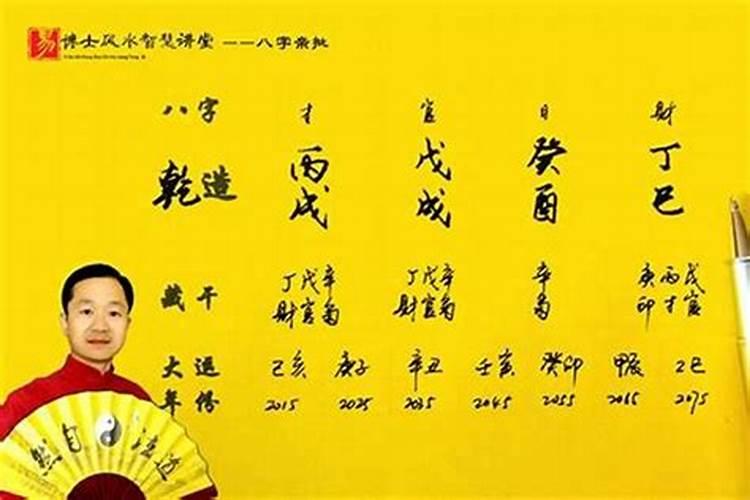 易 博士风水智慧讲堂 ——八字亲批
八字 才 官 日 财
乾造 丙戌 戊戌 癸酉 丁巳
藏干 丁戊辛 丁戊辛 辛 庚丙戊
财官枭 财官枭 枭 印才官
大运 己亥 庚子 辛丑 壬寅 癸卯 甲辰 乙巳
年 2015 2025 2035 2045 2055 2065 2075
然自 法道